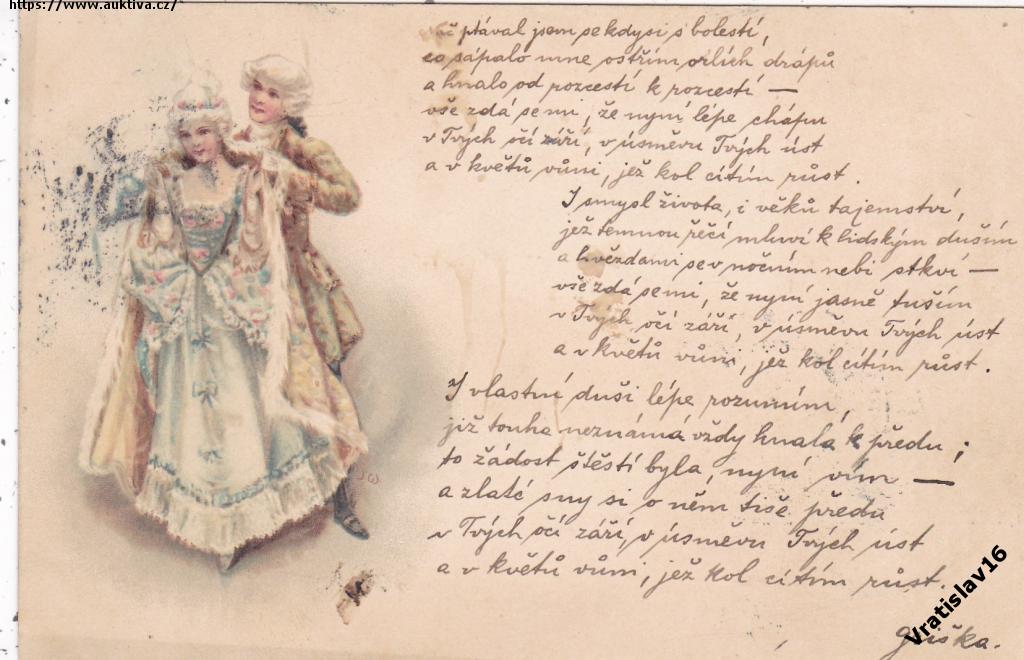 https://www.auktiva.cz/
ptával jsem se kdysi s bolestí,
co sápalo mne ostřím orlích drápů
a hnalo od rozcestí k rozcestí —
vše zdá se mi, že nyní lépe chápu
v Tvých očí záři, v úsměvu Tvých úst
a v květů vůni, jež kol cítím růst.
I smysl života, i věků tajemství,
jež temnou řečí mluví k lidským duším
a hvězdami se v nočním nebi stkví —
vše zdá se mi, že nyní jasně tuším
v Tvých očí záři, v úsměvu Tvých úst
a v květů vůni, jež kol cítím růst.
I vlastní duši lépe rozumím,
již touha neznámá vždy hnala k předu;
to žádost štěstí byla, nyní vím —
a zlaté sny si o něm tiše předu
v Tvých očí záři, v úsměvu Tvých úst
a v květů vůni, jež kol cítím růst.
Vratislav16